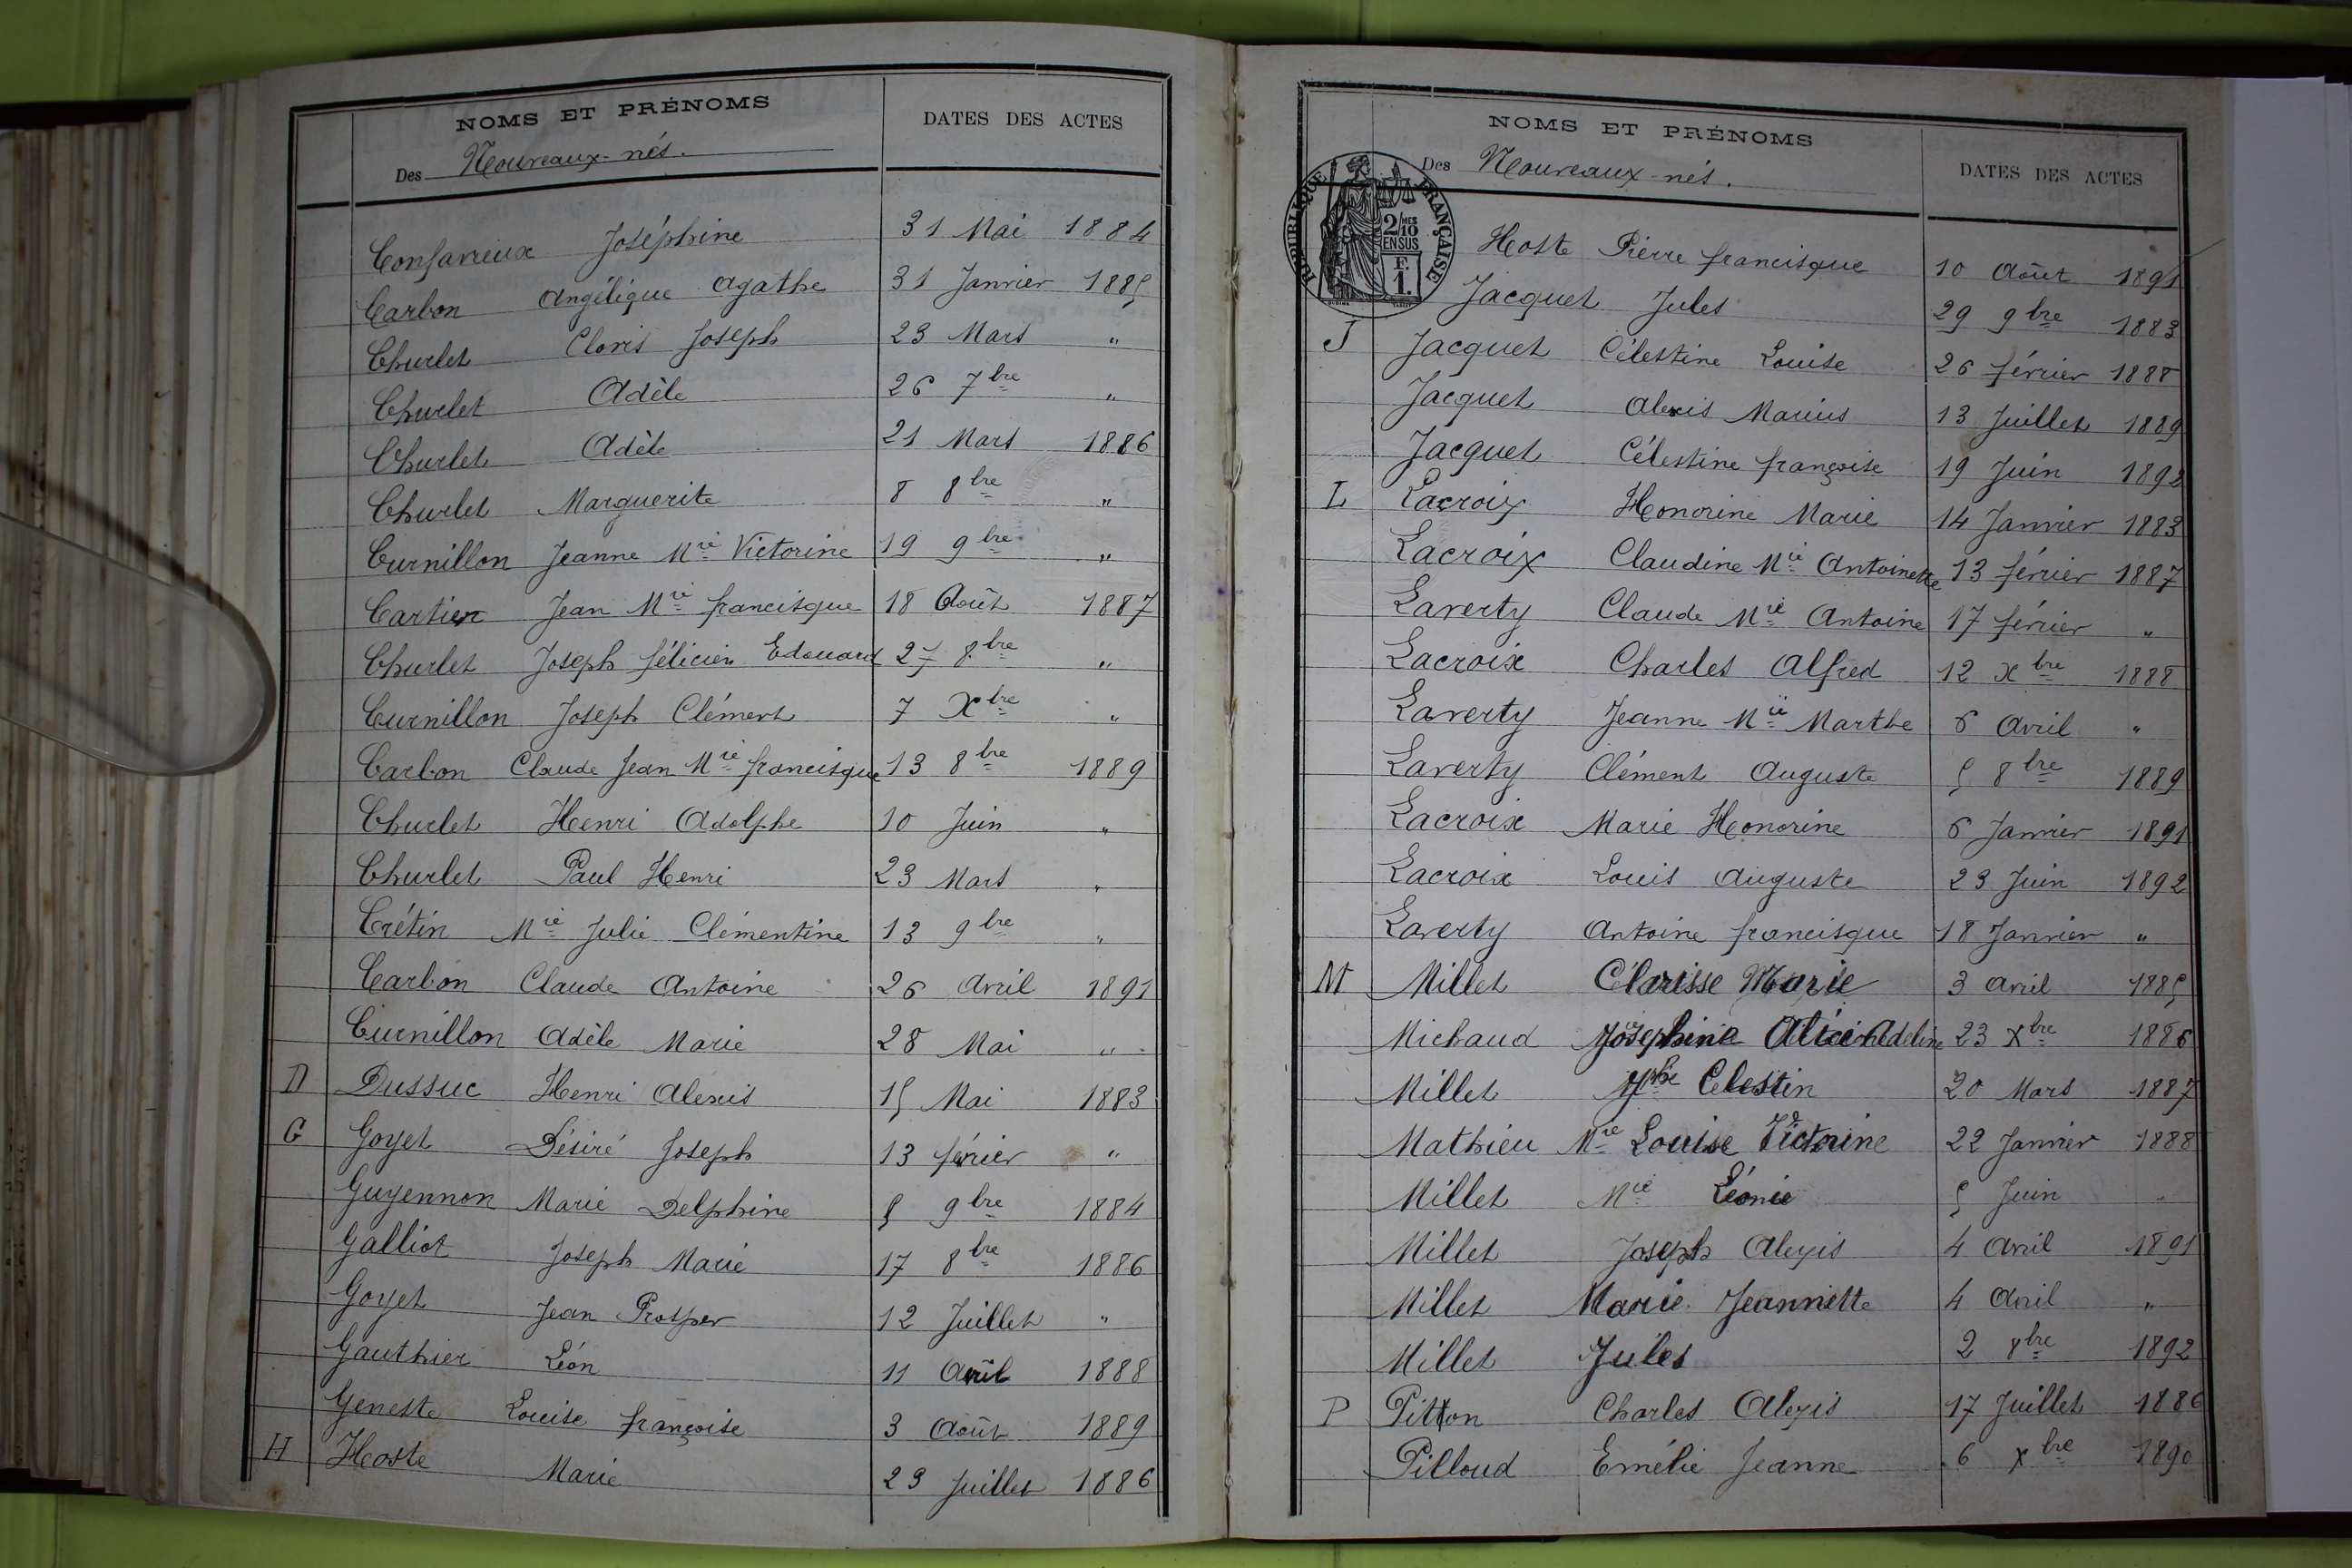 NOMS ET PRÉNOMS
DATES DES ACTES
Des Nouveaux-nés.
Confavreux Joséphine 31 Mai 1884
Carbon Angélique Agathe 31 Janvier 1885
Churlet Clovis Joseph 23 Mars "
Churlet Adèle 26 7bre "
Churlet Adèle 21 Mars 1886
Churlet Marguerite 8 8bre "
Curnillon Jeanne Mie Victorine 19 9bre "
Cartier Jean Mie francisque 18 Août 1887
Churlet Joseph félicien Edouard 27 8bre "
Curnillon Joseph Clément 7 Xbre "
Carbon Claude Jean Mie francisque 13 8bre 1889
Churlet Henri Adolphe 10 Juin "
Churlet Paul Henri 23 Mars "
Crétin Mie Julie Clémentine 13 9bre "
Carbon Claude Antoine 26 Avril 1891
Curnillon Adèle Marie 28 Mai "
D Dussuc Henri Alexis 15 Mai 1883
G Goyet Désiré Joseph 13 février "
Guyennon Marie Delphine 5 9bre 1884
Galliot Joseph Marie 17 8bre 1886
Goyet Jean Prosper 12 Juillet "
Gauthier Léon 11 Avril 1888
Geneste Louise françoise 3 Août 1889
H Hoste Marie 23 Juillet 1886
NOMS ET PRÉNOMS
DATES DES ACTES
Des Nouveaux-nés.
RÉPUBLIQUE FRANÇAISE
2/10 MES
EN SUS
F.
1.
Hoste Pierre francisque 10 Août 1891
Jacquet Jules 29 9bre 1883
J Jacquet Célestine Louise 26 février 1888
Jacquet Alexis Marius 13 Juillet 1889
Jacquet Célestine françoise 19 Juin 1892
L Lacroix Honorine Marie 14 Janvier 1883
Lacroix Claudine Mie Antoinette 13 février 1887
Laverty Claude Mie Antoine 17 février "
Lacroix Charles Alfred 12 xbre 1888
Laverty Jeanne Mie Marthe 6 Avril "
Laverty Clément Auguste 5 8bre 1889
Lacroix Marie Honorine 6 Janvier 1891
Lacroix Louis Auguste 23 Juin 1892
Laverty Antoine francisque 18 Janvier "
M Millet Clarisse Marie 3 Avril 1885
Michaud Joséphine Alice Adeline 23 xbre 1886
Millet Célestin 20 Mars 1887
Mathieu Mie Louise Victorine 22 Janvier 1888
Millet Mie Léonie 5 Juin "
Millet Joseph Alexis 4 Avril 1891
Millet Marie Jeannette 4 Avril "
Millet Jules 2 8bre 1892
P Pitton Charles Alexis 17 Juillet 1886
Pilloud Emélie Jeanne 6 xbre 1890